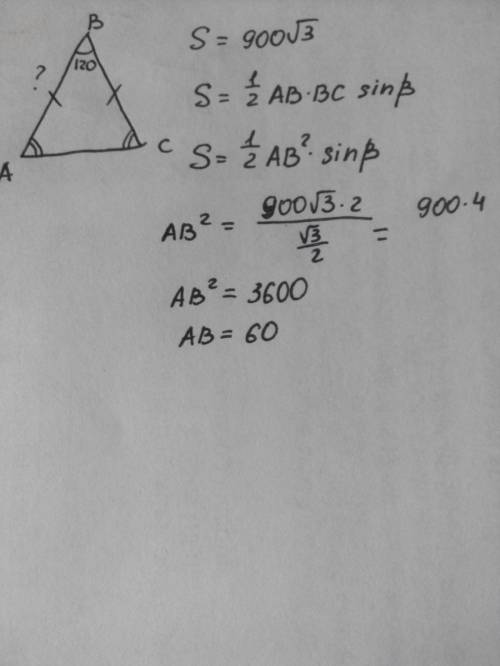 B
120
?
A
C
S = 900√3
S = 1/2 AB·BC sinβ
S = 1/2 AB²· sinβ
AB² = 900√3·2 / √3/2 = 900·4
AB² = 3600
AB = 60